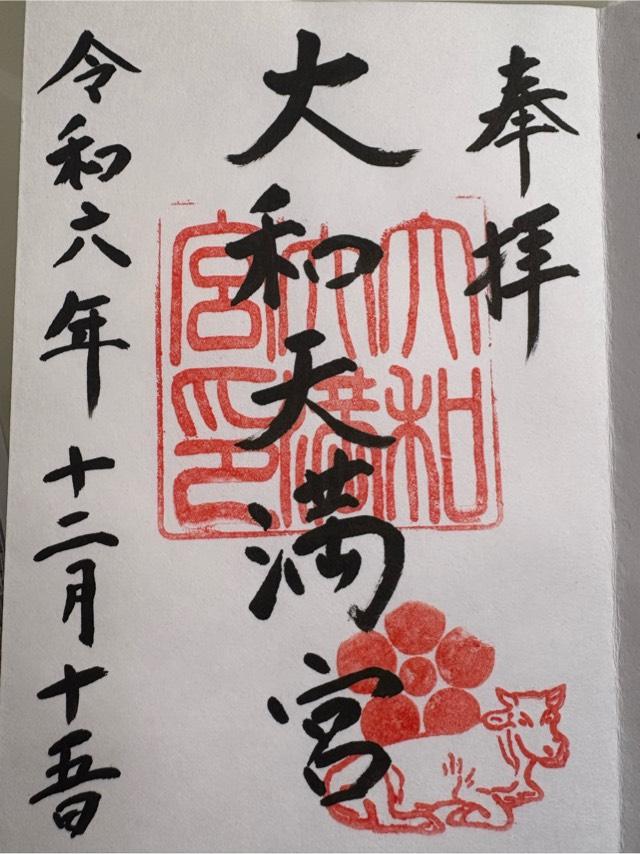 奉拝
大和天満宮
大和天満宮印
令和六年十二月十五日